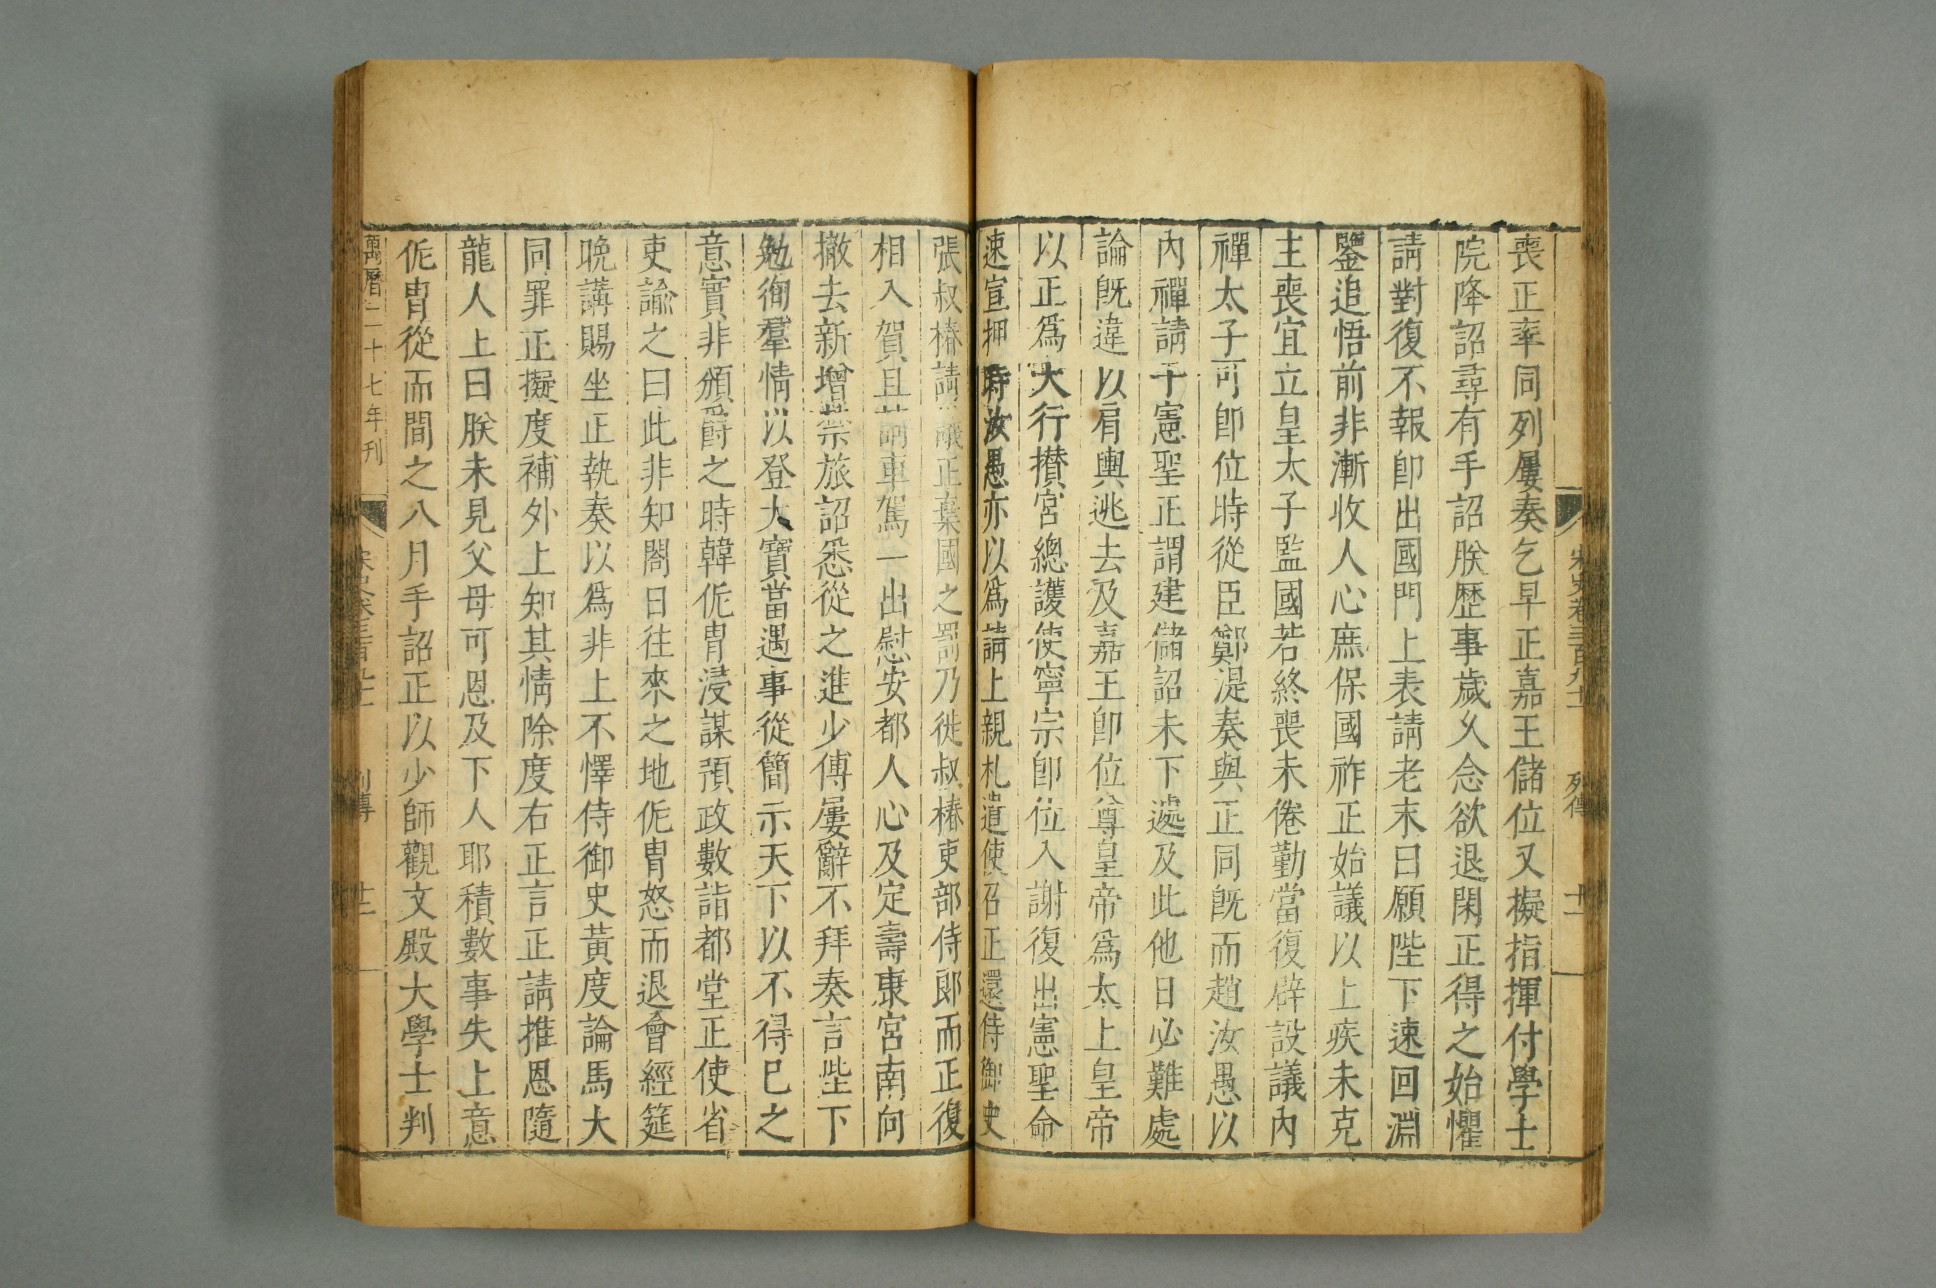 宋史卷三百九十一
列傳
十一
喪正率同列屢奏乞早正嘉王儲位又擬指揮付學士
院降詔尋有手詔朕歷事歲久念欲退閑正得之始懼
請對復不報卽出國門上表請老末曰願陛下速回淵
鑒追悟前非漸收人心庶保國祚正始議以上疾未克
主喪宜立皇太子監國若終喪未倦勤當復辟設議內
禪太子可卽位時從臣鄭湜奏與正同旣而趙汝愚以
內禪請于憲聖正謂建儲詔未下遽及此他日必難處
論旣違以肩輿逃去及嘉王卽位尊皇帝爲太上皇帝
以正爲大行攢宮總護使寧宗卽位入謝復出憲聖命
速宣押時汝愚亦以爲請上親札遣使召正還侍御史
張叔椿請議正棄國之罰乃徙叔椿吏部侍郎而正復
相入賀且請車駕一出慰安都人心及定壽康宮南向
撤去新增禁旅詔悉從之進少傅屢辭不拜奏言陛下
勉徇羣情以登大寶當遇事從簡示天下以不得已之
意實非頒爵之時韓侂胄浸謀預政數詣都堂正使省
吏諭之曰此非知閤日往來之地侂胄怒而退會經筵
晚講賜坐正執奏以爲非上不懌侍御史黃度論馬大
同罪正擬度補外上知其情除度右正言正請推恩隨
龍人上曰朕未見父母可恩及下人耶積數事失上意
侂胄從而間之八月手詔正以少師觀文殿大學士判
萬曆二十七年刊
宋史卷三百九十一
列傳
十二